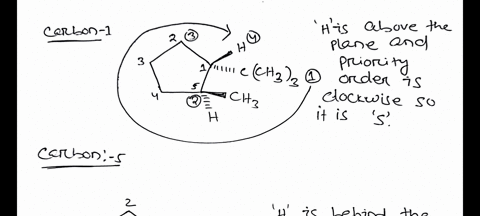 Carbon-1
2 ③
H ④
3
1
C(CH3)3 ①
4
5
② CH3
H
'H' is above the
plane and
priority
order is
clockwise so
it is 's'.
Carbon:-5
2
'H' is behind the